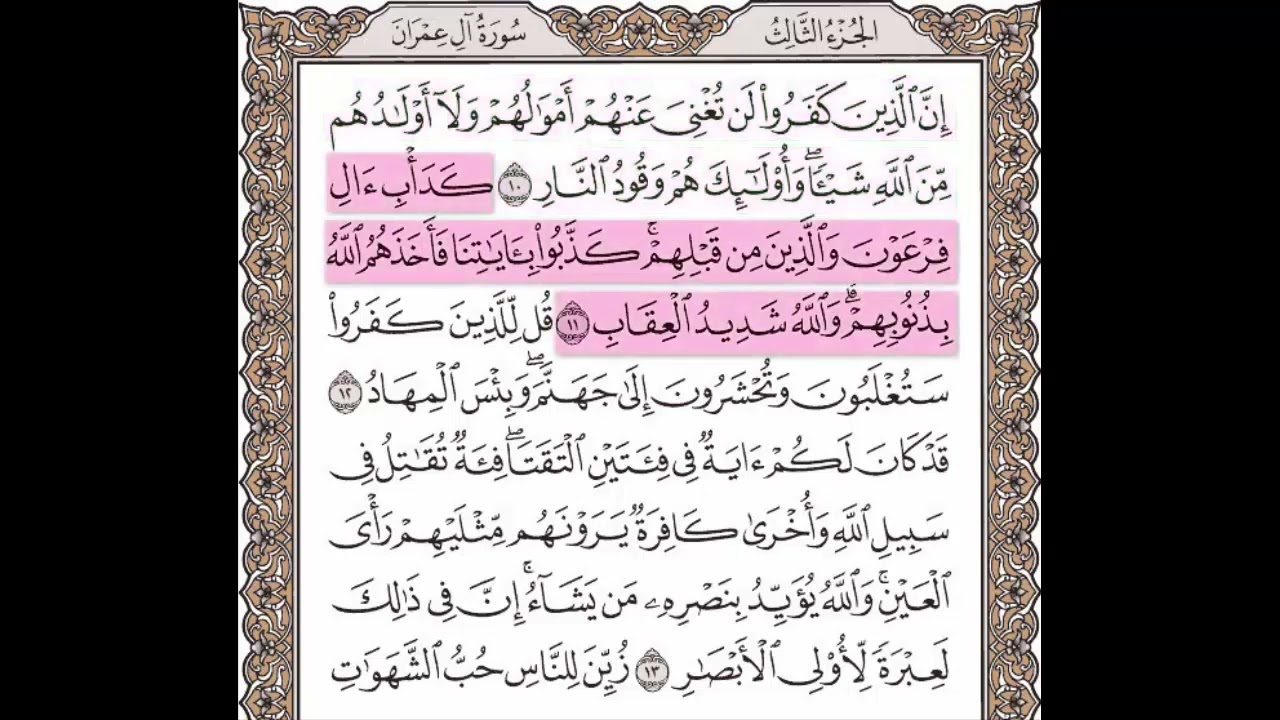 الجُزْءُ الثَّالِثُ
سُورَةُ آلِ عِمْرَانَ
إِنَّ ٱلَّذِينَ كَفَرُواْ لَن تُغْنِيَ عَنْهُمْ أَمْوَٰلُهُمْ وَلَآ أَوْلَٰدُهُم
مِّنَ ٱللَّهِ شَيْـًٔاۖ وَأُوْلَٰٓئِكَ هُمْ وَقُودُ ٱلنَّارِ ١٠ كَدَأْبِ ءَالِ
فِرْعَوْنَ وَٱلَّذِينَ مِن قَبْلِهِمْۚ كَذَّبُواْ بِـَٔايَٰتِنَا فَأَخَذَهُمُ ٱللَّهُ
بِذُنُوبِهِمْۗ وَٱللَّهُ شَدِيدُ ٱلْعِقَابِ ١١ قُل لِّلَّذِينَ كَفَرُواْ
سَتُغْلَبُونَ وَتُحْشَرُونَ إِلَىٰ جَهَنَّمَۖ وَبِئْسَ ٱلْمِهَادُ ١٢
قَدْ كَانَ لَكُمْ ءَايَةٌ فِي فِئَتَيْنِ ٱلْتَقَتَاۖ فِئَةٌ تُقَٰتِلُ فِي
سَبِيلِ ٱللَّهِ وَأُخْرَىٰ كَافِرَةٌ يَرَوْنَهُم مِّثْلَيْهِمْ رَأْيَ
ٱلْعَيْنِۚ وَٱللَّهُ يُؤَيِّدُ بِنَصْرِهِۦ مَن يَشَآءُۚ إِنَّ فِي ذَٰلِكَ
لَعِبْرَةً لِّأُوْلِي ٱلْأَبْصَٰرِ ١٣ زُيِّنَ لِلنَّاسِ حُبُّ ٱلشَّهَوَٰتِ